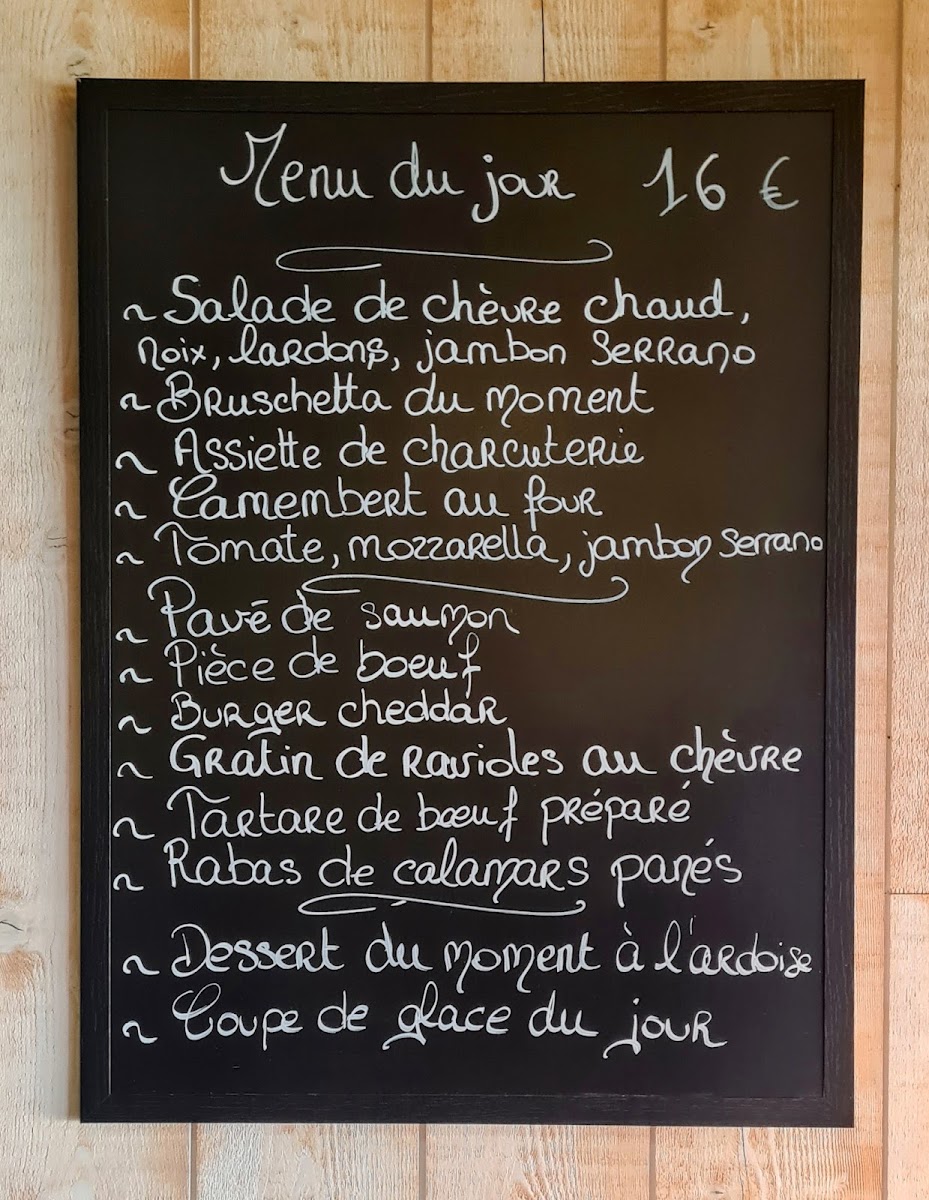 Menu du jour 16 €
~ Salade de chèvre chaud,
noix, lardons, jambon Serrano
~ Bruschetta du moment
~ Assiette de charcuterie
~ Camembert au four
~ Tomate, mozzarella, jambon Serrano
~ Pavé de saumon
~ Pièce de boeuf
~ Burger cheddar
~ Gratin de ravioles au chèvre
~ Tartare de bœuf préparé
~ Rabas de calamars panés
~ Dessert du moment à l'ardoise
~ Coupe de glace du jour